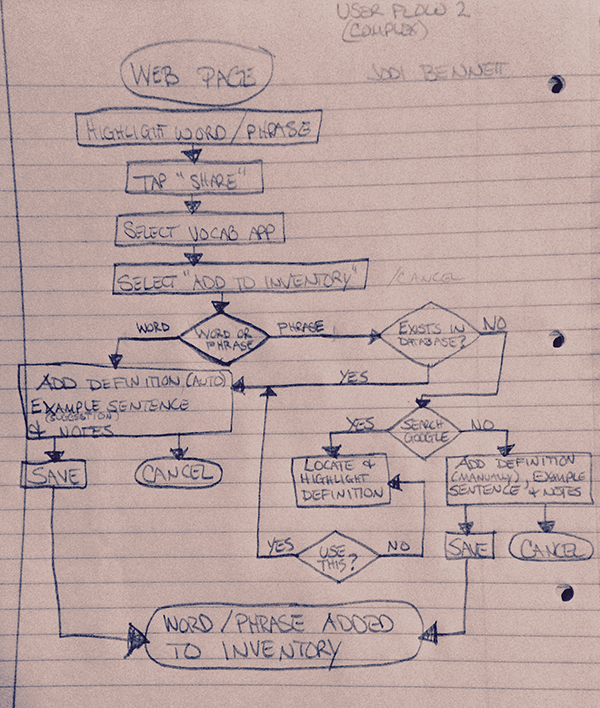 USER FLOW 2
(COMPLEX)
JODI BENNETT
WEB PAGE
HIGHLIGHT WORD/PHRASE
TAP "SHARE"
SELECT VOCAB APP
SELECT "ADD TO INVENTORY"
/CANCEL
WORD
WORD OR
PHRASE
PHRASE
EXISTS IN
DATABASE?
NO
YES
ADD DEFINITION (AUTO)
EXAMPLE SENTENCE
(SUGGESTION)
& NOTES
SAVE
CANCEL
YES
SEARCH
GOOGLE
NO
LOCATE &
HIGHLIGHT
DEFINITION
ADD DEFINITION
(MANUALLY), EXAMPLE
SENTENCE & NOTES
YES
USE
THIS?
NO
SAVE
CANCEL
WORD/PHRASE ADDED
TO INVENTORY